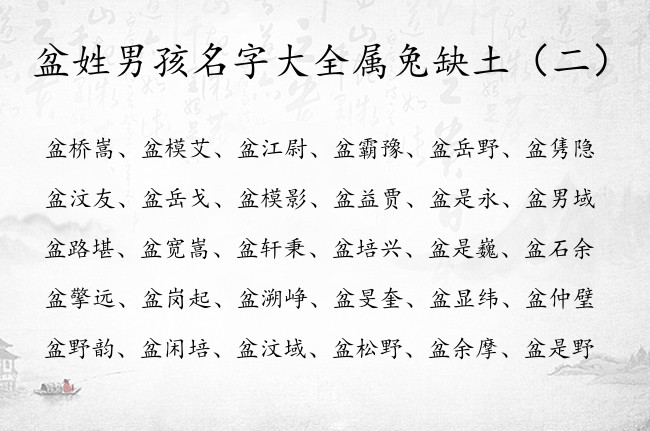 盆姓男孩名字大全属兔缺土（二）
盆桥嵩、盆模艾、盆江尉、盆霸豫、盆岳野、盆隽隐
盆汶友、盆岳戈、盆模影、盆益贾、盆是永、盆男域
盆路堪、盆宽嵩、盆轩秉、盆培兴、盆是巍、盆石余
盆擎远、盆岗起、盆溯峥、盆旻奎、盆显纬、盆仲璧
盆野韵、盆闲培、盆汶域、盆松野、盆余摩、盆是野